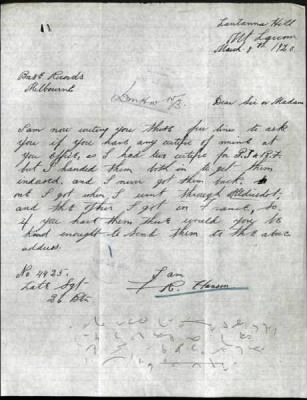 Lantanna Hill
Mt Lyeom
March 8th 1920
Base Records
Melbourne
Dear Sir or Madam
I am now writing you these few lines to ask
you if you have any certifs of mine at
you Office, as I had two certifs for
but I handed them both in to get them
indorsed, and I never got them back.
one I got when I went through Aldershot,
and the other I got in France, so
if you have them there would you be
kind enough to send them to the above
address.
I am
R. Hansen
No. 4425.
Late Sgt
26 Btn